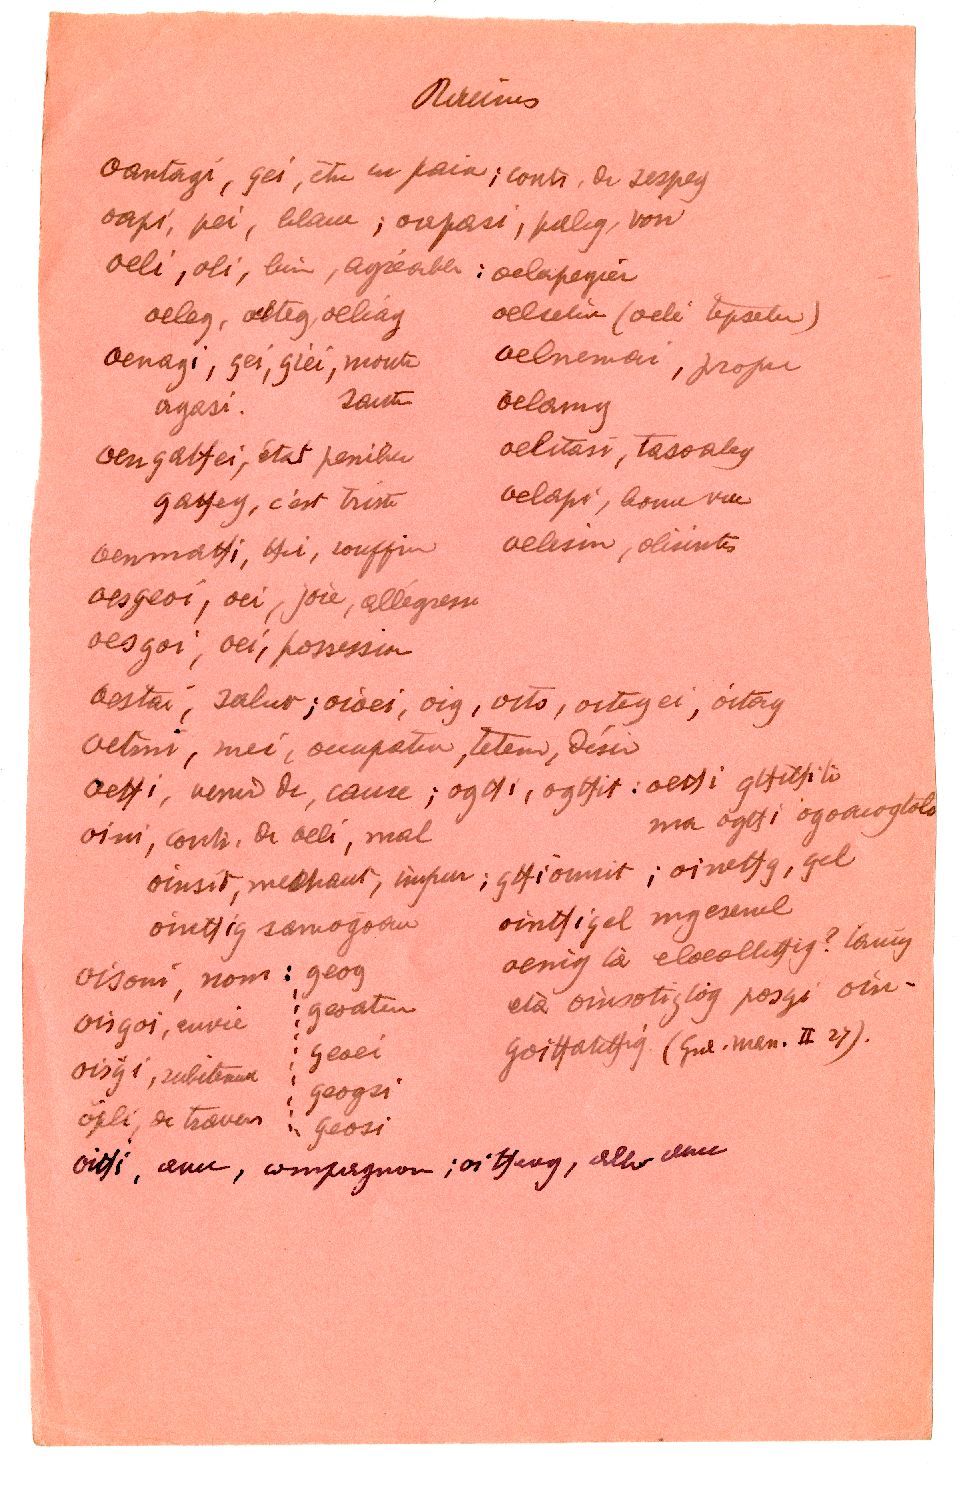 Racines
oantagi, gei, être en paix ; contr. de sespeg
oapi, pei, blanc ; oapasi, paleg, voir
oeli, oli, bien, agréable : oelapegier
oeleg, oelteg, oeliag oelseliu (oeli tepselu)
oenagi, gei, giei, monte oelnemai, propre
agasi. saute oelamg
oengatfei, état penible oelitasi, tasoaleg
gatfeg, c'est triste oelapi, bonne vue
oenmatfi, tfei, souffrir oelisin, olisintes
oesgeoi, oei, joie, allégresse
oesgoi, oei, possession
oestai, salut ; oioei, oig, oito, oitegei, oitag
oetmi, mei, occupation, teten, désir
oetfi, venir de, cause ; ogtfi, ogtfit : oetfi
ma ogtfi
oini, contr. de oeli, mal
oinsit, mechant, impur ; gtfioinsit ; oinetfg, gel
oinetfig samogoan ointfigel mgesenel
oisoni, nom : geog oenig la
oisgoi, envie geoaten ela oinsotizlog posgi oin-
oisgi, subitement geoei (gue. man. II 27).
opli, de travers geogsi
geosi
oitfi, ame, compagnon ; oitfeag, allo ame